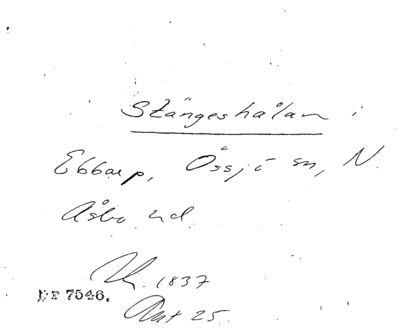 Stängeshålan i
Ebbarp, Össjö sn, N.
Åsbo hd.
1837
Nr 7546.
Akt 25.